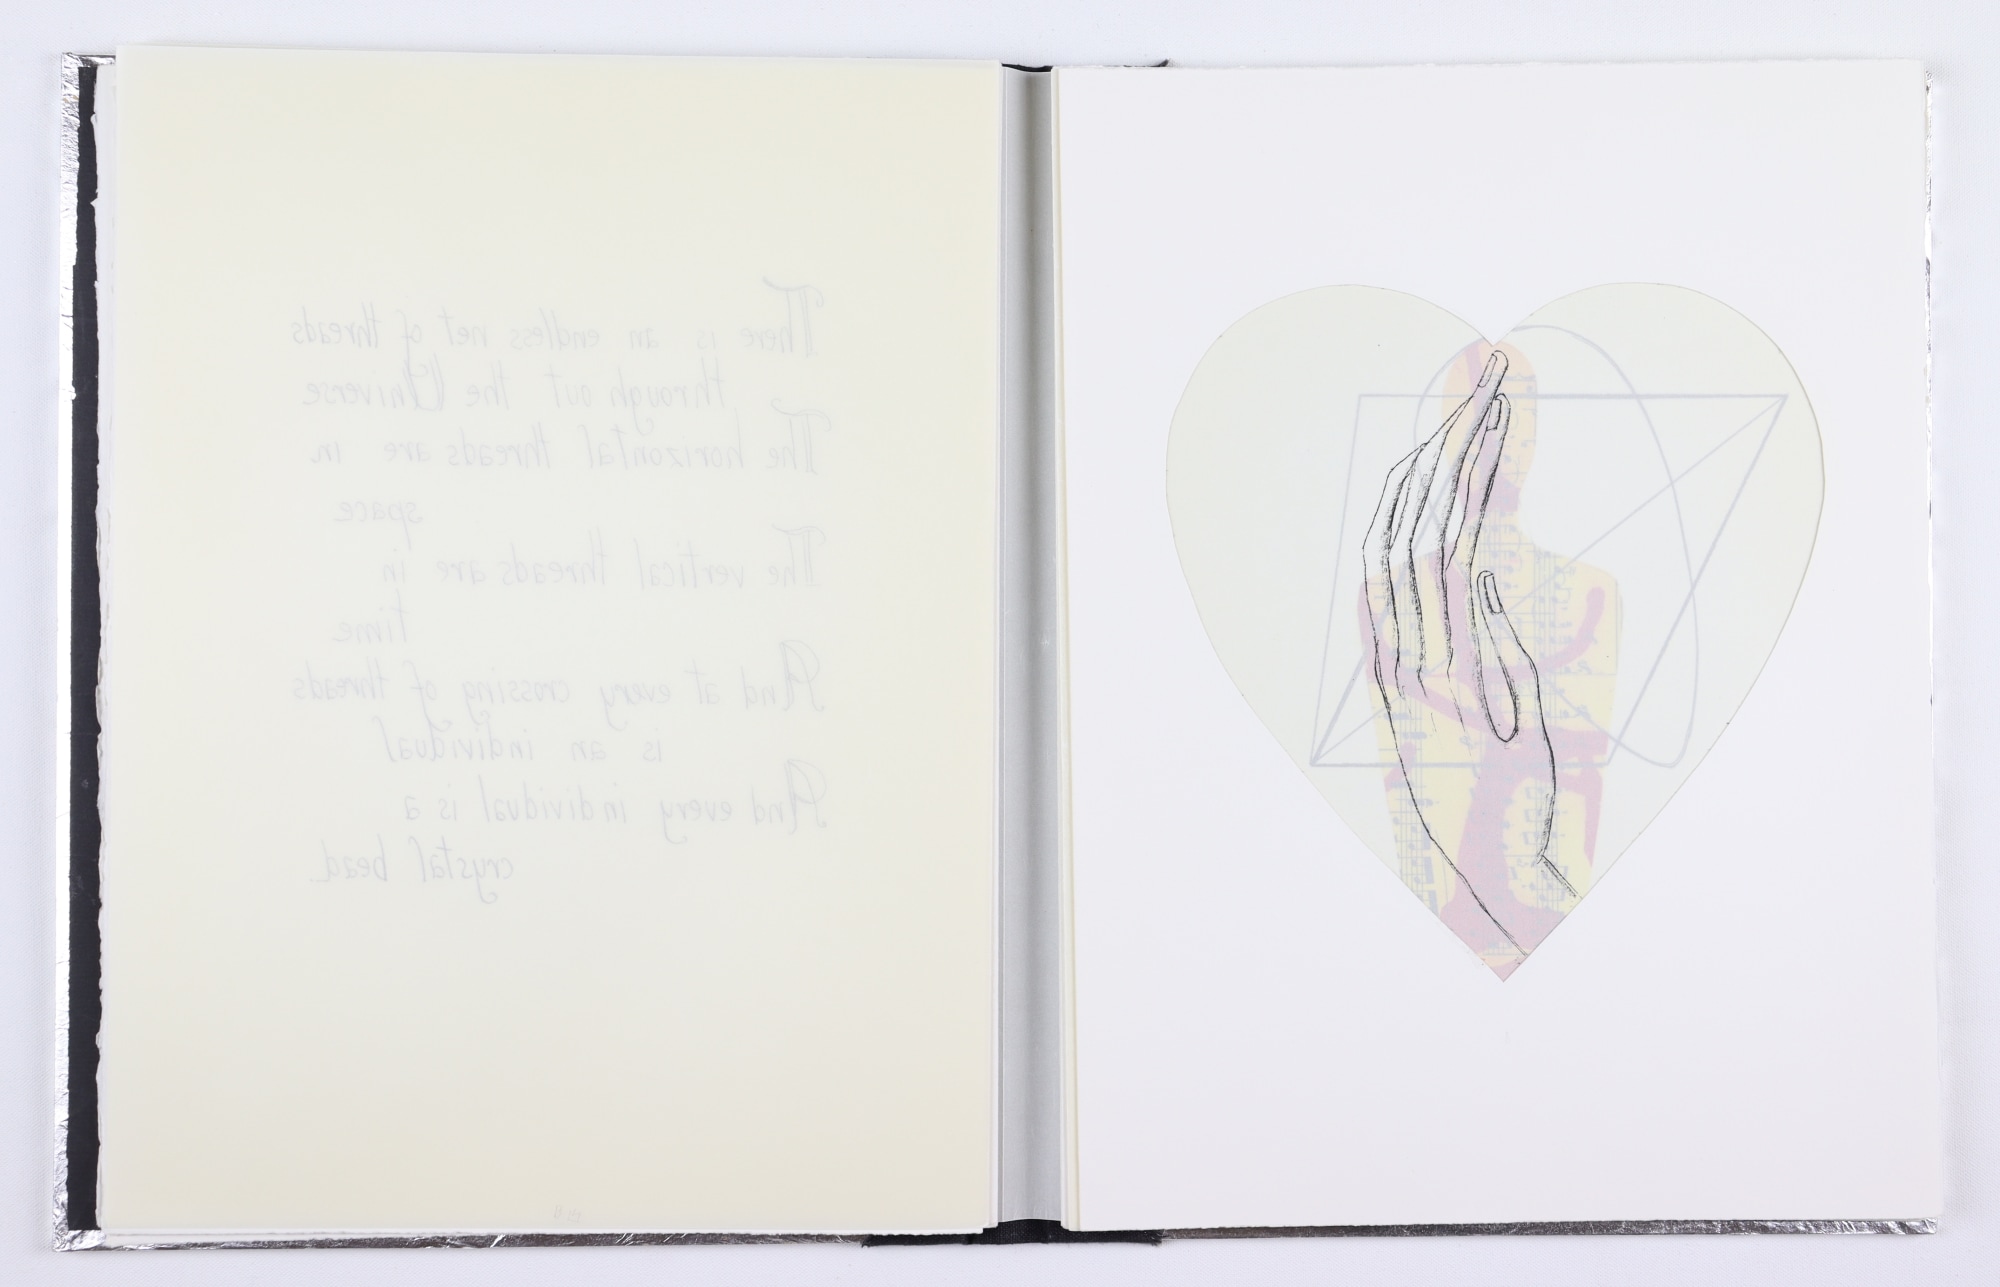 There is an endless net of threads
through out the Universe
The horizontal threads are in
space
The vertical threads are in
time
And at every crossing of threads
is an individual
And every individual is a
crystal bead.